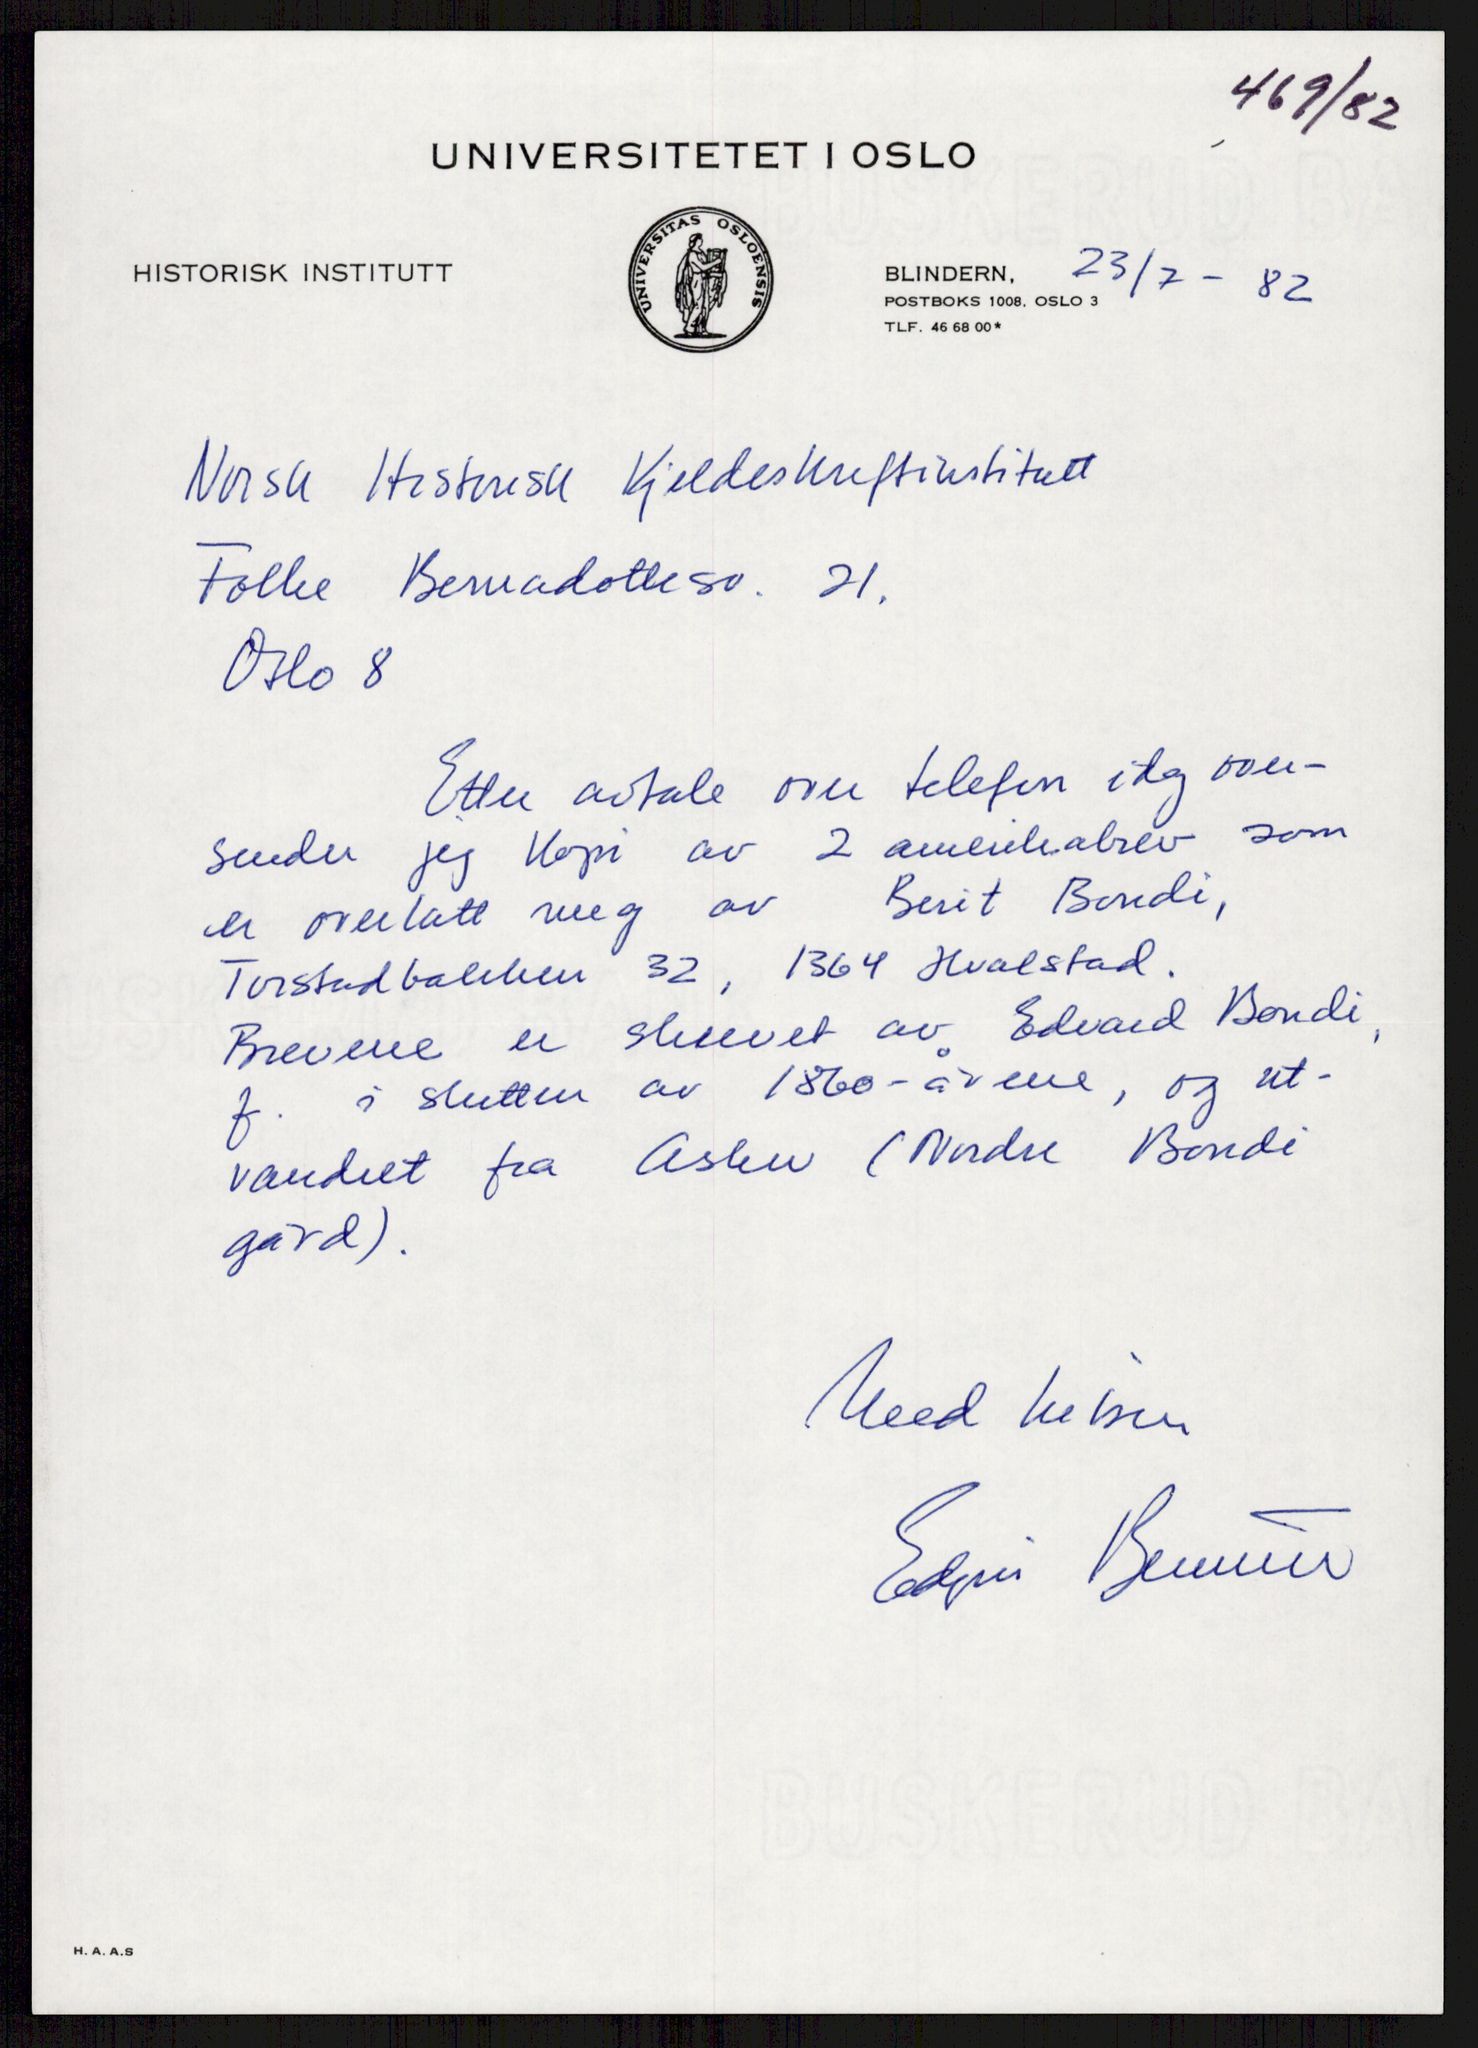 469/82
UNIVERSITETET I OSLO
UNIVERSITAS OSLOENSIS
HISTORISK INSTITUTT
BLINDERN, 23/7 - 82
POSTBOKS 1008. OSLO 3
TLF. 46 68 00*
Norsk Historisk Kjeldeskriftinstitutt
Folke Bernadottesv. 21.
Oslo 8
Etter avtale over telefon idag over-
sender jeg kopi av 2 amerikabrev som
er overlatt meg av Berit Bondi,
Torstadbakken 32, 1364 Hvalstad.
Brevene er skrevet av Edvard Bondi,
f. i slutten av 1860-årene, og ut-
vandret fra Asker (Nordre Bondi
gård).
Med hilsen
BUSKERUD BA
H. A. A.S